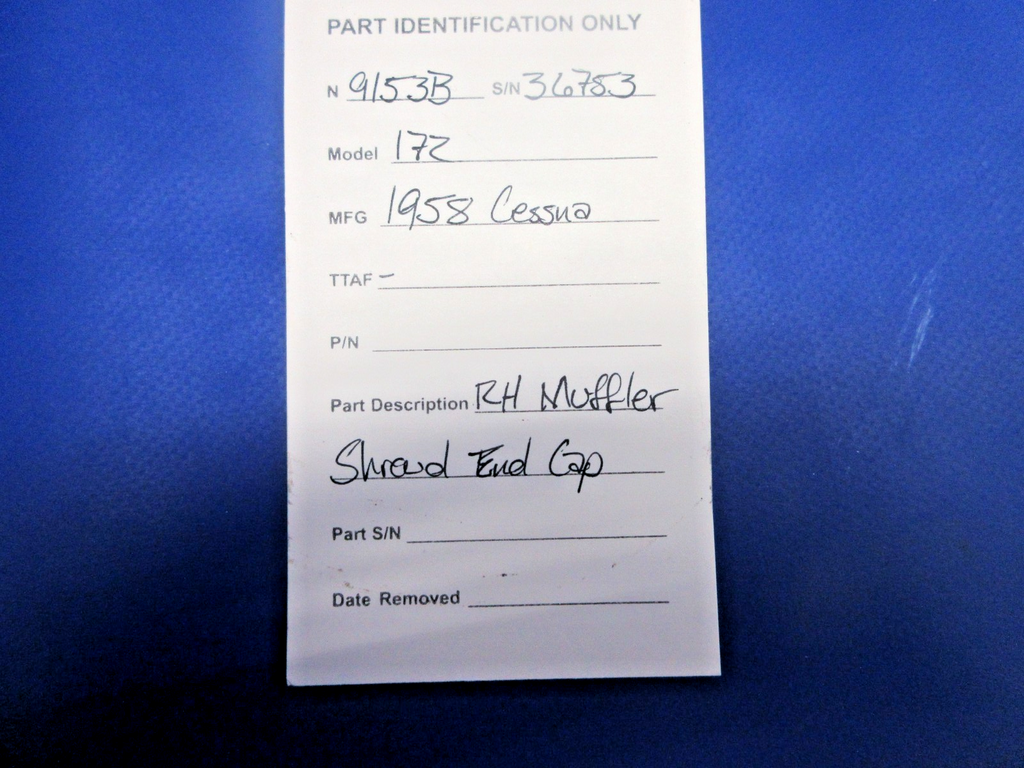 PART IDENTIFICATION ONLY
N 9153B S/N 36753
Model 172
MFG 1958 Cessna
TTAF –
P/N
Part Description RH Muffler
Shroud End Cap
Part S/N
Date Removed